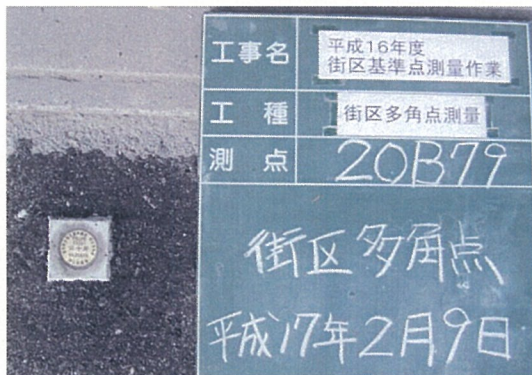 工事名
平成16年度
街区基準点測量作業
工種
街区多角点測量
測点
20B79
街区多角点
平成17年2月9日